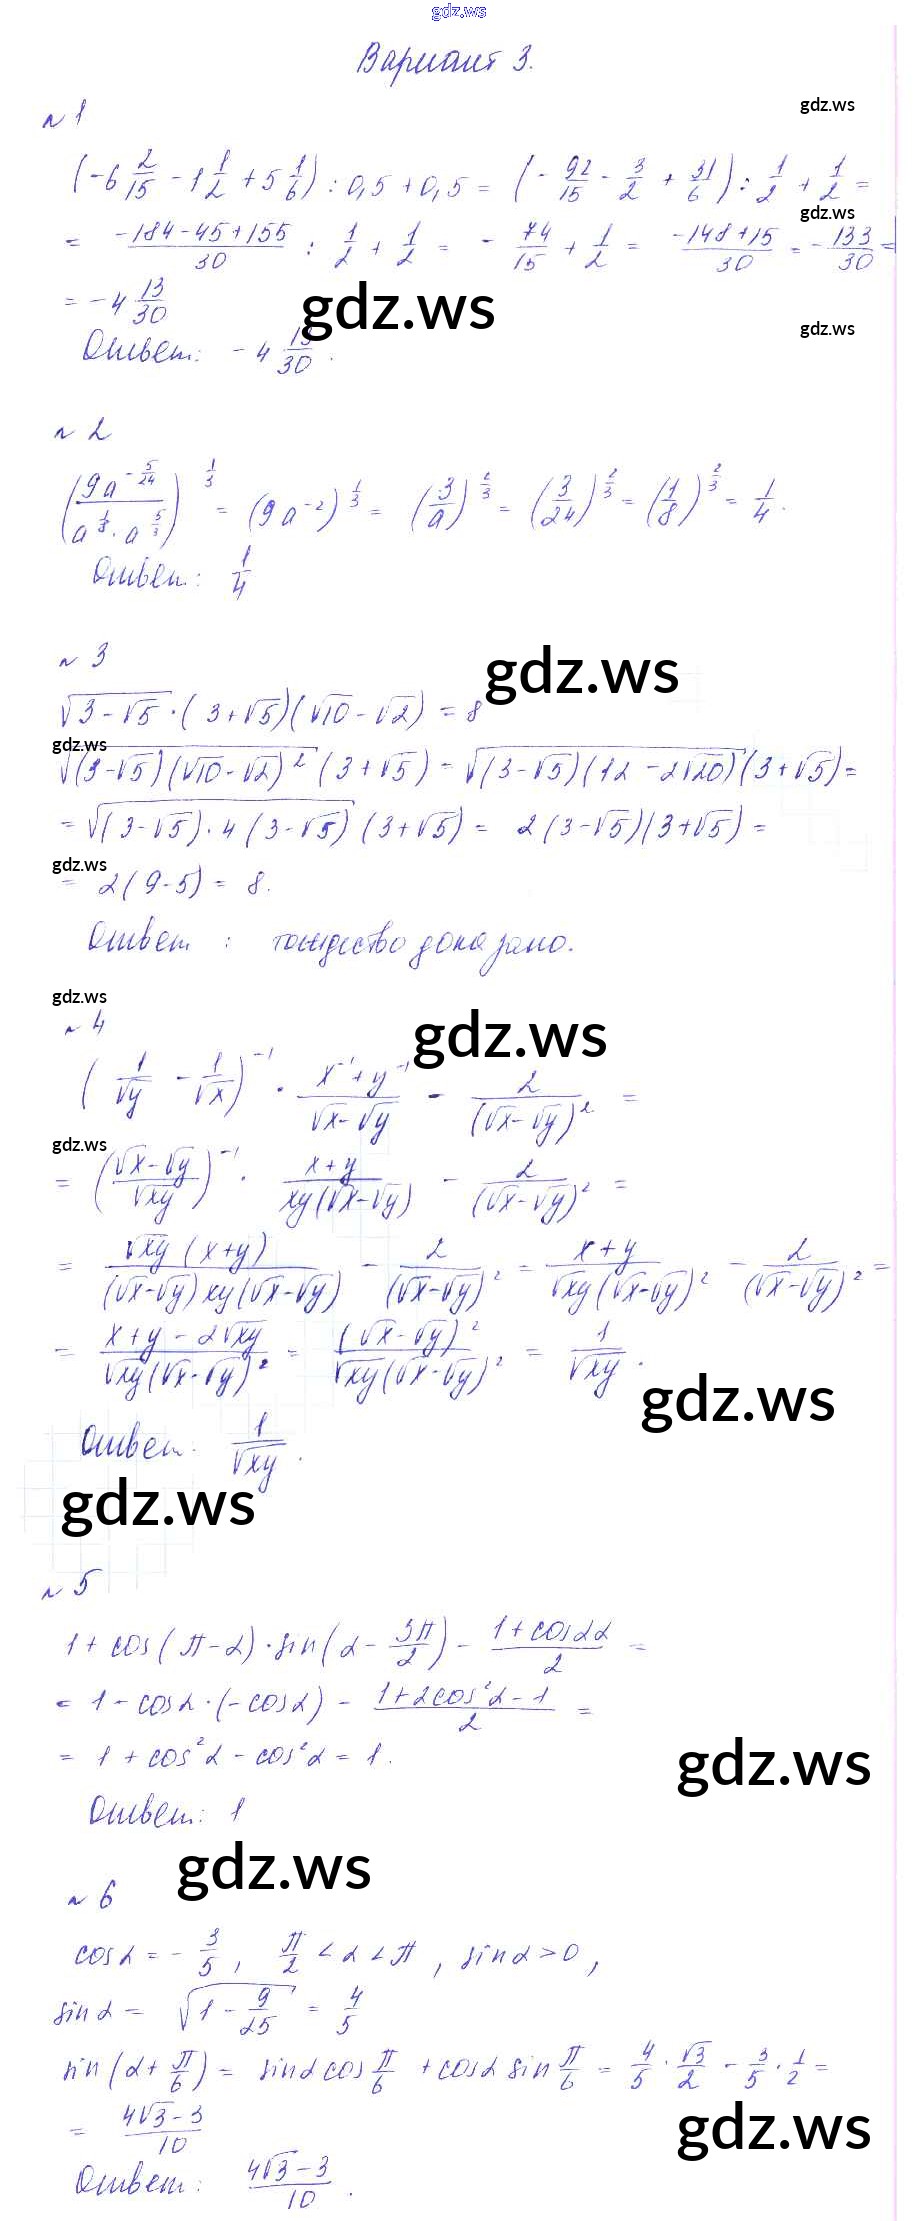 gdz.ws
Вариант 3.
gdz.ws
№ 1
(-6 2/15 - 1 1/2 + 5 1/6) : 0,5 + 0,5 = (- 92/15 - 3/2 + 31/6) : 1/2 + 1/2 =
gdz.ws
= (-184-45+155)/30 : 1/2 + 1/2 = - 74/15 + 1/2 = (-148+15)/30 = - 133/30 =
= -4 13/30
gdz.ws
gdz.ws
Ответ: -4 13/30.
№ 2
(9a^(-5/24) / (a^(1/8) · a^(5/3)))^(1/3) = (9a^(-2))^(1/3) = (3/a)^(2/3) = (3/24)^(2/3) = (1/8)^(2/3) = 1/4.
Ответ: 1/4
№ 3
gdz.ws
√(3-√5) · (3+√5)(√10-√2) = 8
gdz.ws
√((3-√5)(√10-√2)²) (3+√5) = √((3-√5)(12-2√20)) (3+√5) =
= √((3-√5)·4(3-√5)) (3+√5) = 2(3-√5)(3+√5) =
gdz.ws
= 2(9-5) = 8.
Ответ: тождество доказано.
gdz.ws
№ 4
gdz.ws
(1/√y - 1/√x)^(-1) · (x^(-1)+y^(-1))/(√x-√y) - 2/(√x-√y)² =
gdz.ws
= ((√x-√y)/√xy)^(-1) · (x+y)/(xy(√x-√y)) - 2/(√x-√y)² =
= √xy(x+y)/((√x-√y)xy(√x-√y)) - 2/(√x-√y)² = (x+y)/(√xy(√x-√y)²) - 2/(√x-√y)² =
= (x+y-2√xy)/(√xy(√x-√y)²) = (√x-√y)²/(√xy(√x-√y)²) = 1/√xy.
gdz.ws
Ответ. 1/√xy.
gdz.ws
№ 5
1 + cos(π-α)·sin(α - 3π/2) - (1+cos2α)/2 =
= 1 - cosα·(-cosα) - (1+2cos²α-1)/2 =
= 1 + cos²α - cos²α = 1.
gdz.ws
Ответ: 1
gdz.ws
№ 6
cosα = - 3/5, π/2 < α < π, sinα > 0,
sinα = √(1 - 9/25) = 4/5
sin(α + π/6) = sinα cos π/6 + cosα sin π/6 = 4/5 · √3/2 - 3/5 · 1/2 =
= (4√3-3)/10
gdz.ws
Ответ: (4√3-3)/10.